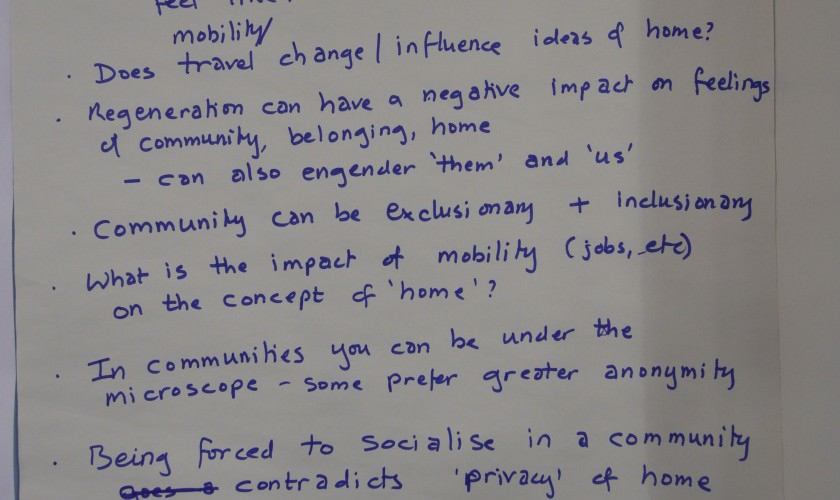 feel like
mobility/
· Does travel change / influence ideas of home?
· Regeneration can have a negative impact on feelings
of community, belonging, home
- can also engender 'them' and 'us'
· Community can be exclusionary + inclusionary
· What is the impact of mobility (jobs, etc)
on the concept of 'home'?
· In communities you can be under the
microscope - some prefer greater anonymity
· Being forced to socialise in a community
contradicts 'privacy' of home